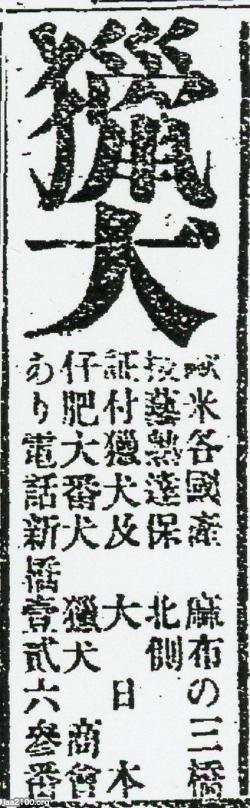 獵犬
歐米各國產 麻布の三橋
技藝熟達保 北側
証付獵犬及 大日本
仔肥大番犬 獵犬商會
あり電話新橋壹貳六參番
jaa2100.org